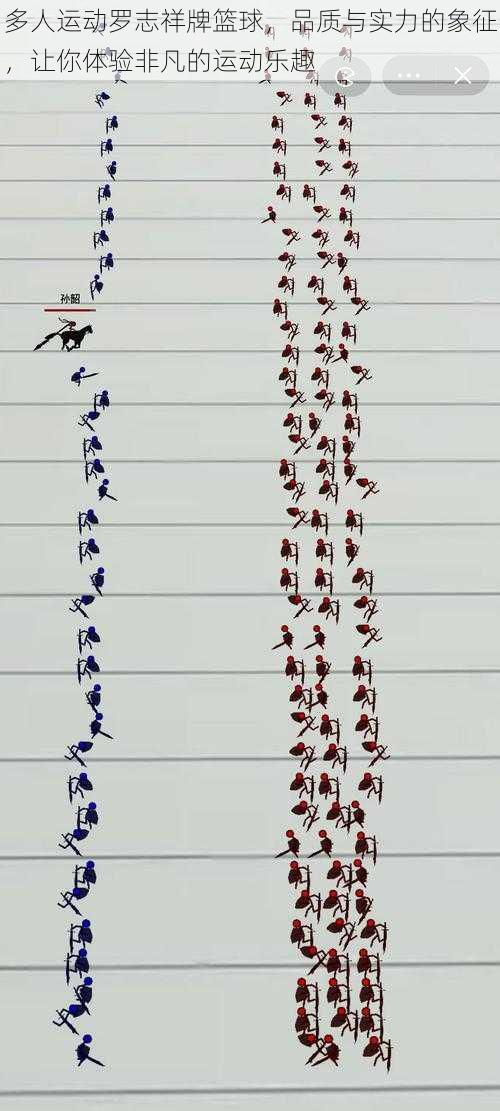 多人运动罗志祥牌篮球，品质与实力的象征
，让你体验非凡的运动乐趣
孙韶